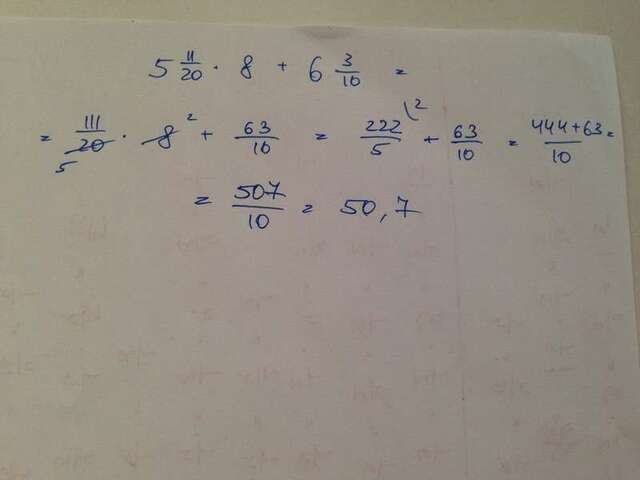 5 11/20 · 8 + 6 3/10 =
= 111/20 5 · 8 2 + 63/10 = 222/5 \2 + 63/10 = 444+63/10 =
= 507/10 = 50,7